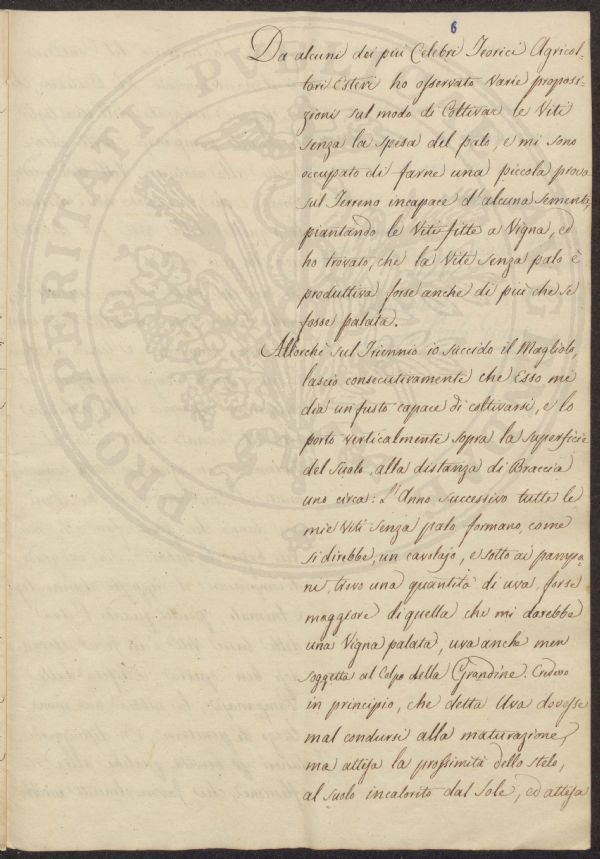 6
Da alcuni dei più Celebri Teorici Agricol-
tori Esteri ho osservato varie proposi-
zioni sul modo di Coltivar le Viti
senza la spesa del palo, e mi sono
occupato di farne una piccola prova
sul Terreno incapace d'alcuna Sementa,
piantando le Viti fitte a Vigna, ed
ho trovato, che la Vite senza palo è
produttiva forse anche di più che se
fosse palata.
Allorchè sul Triennio io succido il Magliolo,
lascio consecutivamente che Esso mi
dia un fusto capace di coltivarsi, e lo
porto verticalmente sopra la superficie
del Suolo, alla distanza di Braccia
uno circa: L'Anno successivo tutte le
mie Viti senza palo formano, come
si direbbe, un cavolajo, e sotto ai pampa-
ni, trovo una quantità di uva, forse
maggiore di quella che mi darebbe
una Vigna palata, uva anche men
soggetta al Colpo della Grandine. Credevo
in principio, che detta Uva dovesse
mal condursi alla maturazione,
ma attesa la prossimità dello stelo,
al suolo incalorito dal Sole, ed attesa
PROSPERITATI